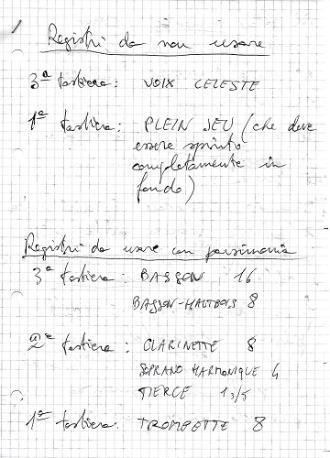 Registri da non usare
3ª tastiera: VOIX CELESTE
1ª tastiera: PLEIN JEU (che deve
essere spinto
completamente in
fondo)
Registri da usare con parsimonia
3ª tastiera: BASSON 16
BASSON-HAUTBOIS 8
2ª tastiera: CLARINETTE 8
SOPRANO HARMONIQUE 4
TIERCE 1 3/5
1ª tastiera: TROMPETTE 8